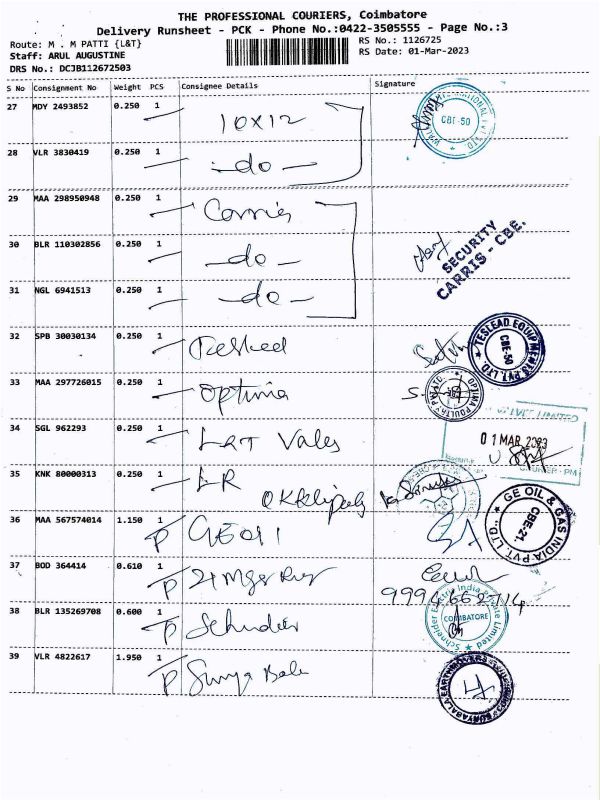 THE PROFESSIONAL COURIERS, Coimbatore
Delivery Runsheet - PCK - Phone No.:0422-3505555 - Page No.:3
Route: M . M PATTI {L&T}
RS No.: 1126725
Staff: ARUL AUGUSTINE
RS Date: 01-Mar-2023
DRS No.: DCJB112672503
S No Consignment No Weight PCS Consignee Details Signature
27 MDY 2493852 0.250 1 10x12
CBE-50
28 VLR 3830419 0.250 1 -do-
29 MAA 298950948 0.250 1 Carris
30 BLR 110302856 0.250 1 -do-
SECURITY
CARRIS - CBE.
31 NGL 6941513 0.250 1 -do-
32 SPB 30030134 0.250 1
TESLEAD EQUIPMENTS PVT. LTD.
CBE-50
33 MAA 297726015 0.250 1 Optima
34 SGL 962293 0.250 1 L&T Valves
01 MAR 2023
35 KNK 80000313 0.250 1
36 MAA 567574014 1.150 1 P GEOil
GE OIL & GAS INDIA PVT. LTD.
CBE-21.
37 BOD 364414 0.610 1 P
38 BLR 135269708 0.600 1 P Schneider
Schneider Electric India Private Limited
COIMBATORE
39 VLR 4822617 1.950 1 P Surya Bala